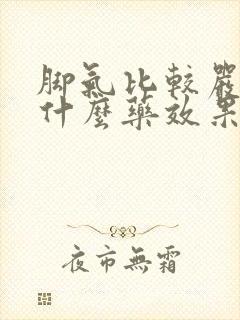 脚氣比較嚴
什麼藥效果
夜市無霜